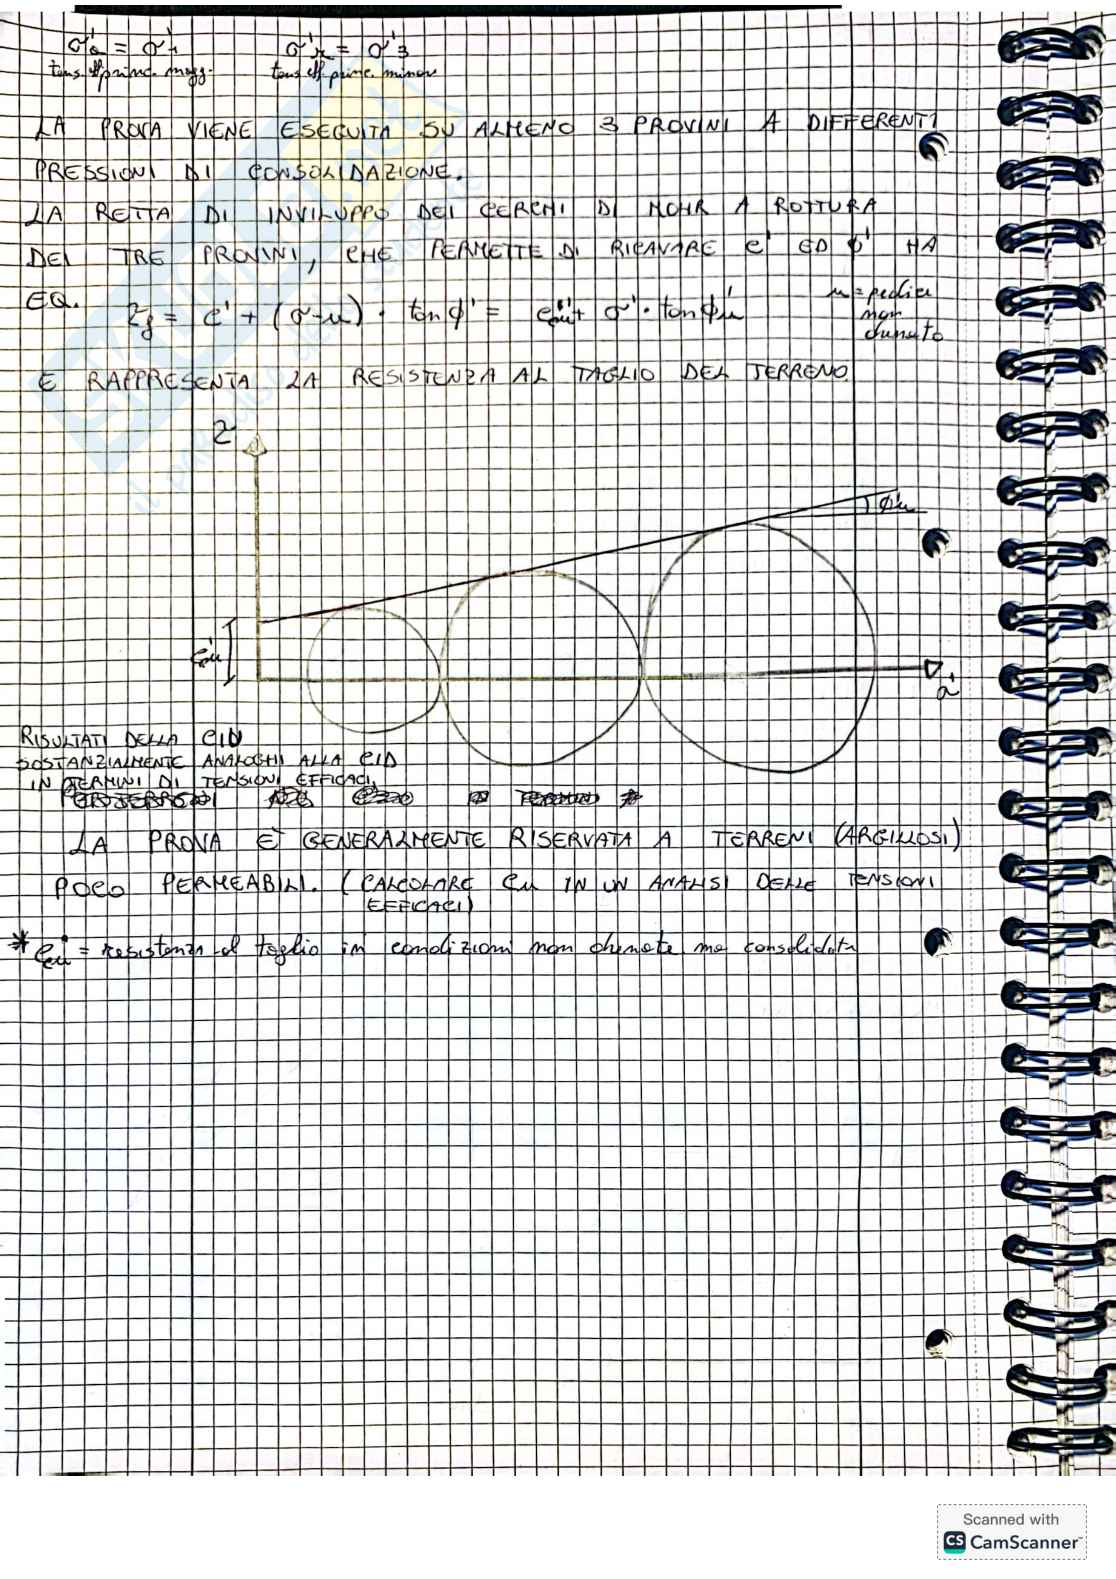 σ'a = σ'1 σ'r = σ'3
tens. eff. princ. magg. tens. eff. princ. minore
LA PROVA VIENE ESEGUITA SU ALMENO 3 PROVINI A DIFFERENTI
PRESSIONI DI CONSOLIDAZIONE.
LA RETTA DI INVILUPPO DEI CERCHI DI MOHR A ROTTURA
DEI TRE PROVINI, CHE PERMETTE DI RICAVARE c' ED φ' HA
EQ. τf = c' + (σ-u) · tan φ' = c'cu + σ' · tan φ'u u = pedice
non
drenato
E RAPPRESENTA LA RESISTENZA AL TAGLIO DEL TERRENO.
τ
φ'u
c'cu
σ'
RISULTATI DELLA CIU
SOSTANZIALMENTE ANALOGHI ALLA CID
IN TERMINI DI TENSIONI EFFICACI
LA PROVA E' GENERALMENTE RISERVATA A TERRENI (ARGILLOSI)
POCO PERMEABILI. (CALCOLARE Cu IN UN ANALISI DELLE TENSIONI
EFFICACI)
* c'cu = resistenza al taglio in condizioni non drenate ma consolidate
Scanned with
CS CamScanner